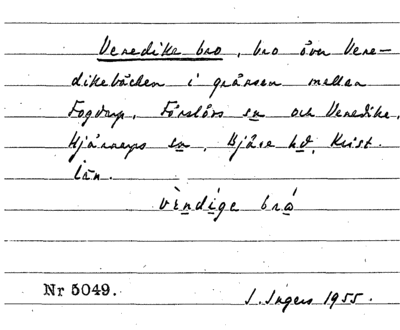 Venedike bro, bro över Vene-
dikebäcken i gränsen mellan
Fogdarp, Förslövs sn och Venedike,
Hjärnarps sn, Bjäre hd, Krist.
län.
vèndige brò
Nr 5049.
I. Ingers 1955.